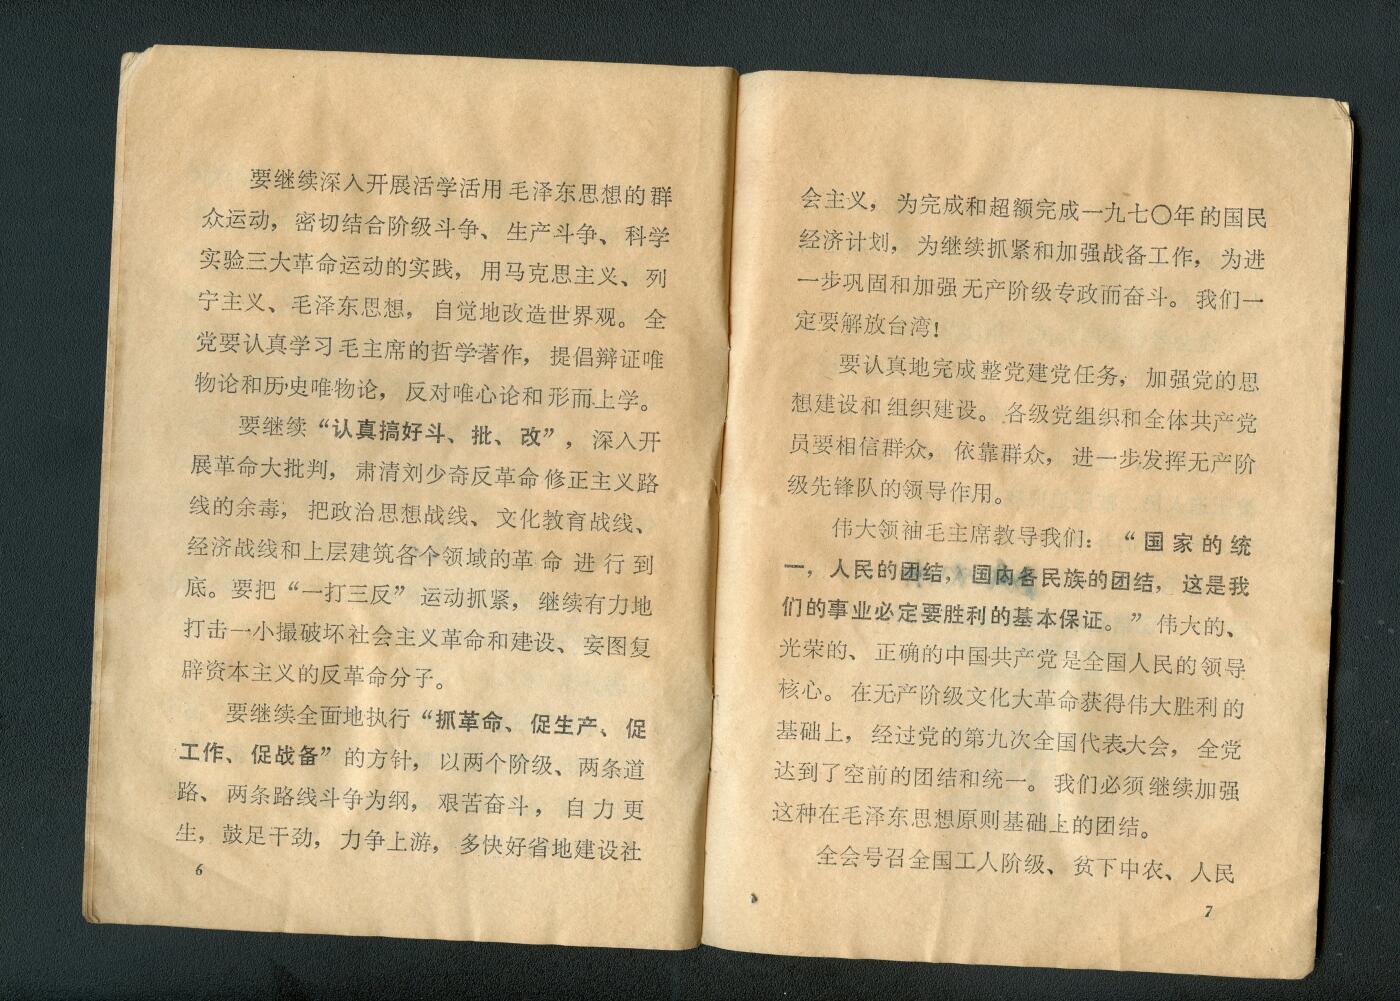 要继续深入开展活学活用毛泽东思想的群
众运动，密切结合阶级斗争、生产斗争、科学
实验三大革命运动的实践，用马克思主义、列
宁主义、毛泽东思想，自觉地改造世界观。全
党要认真学习毛主席的哲学著作，提倡辩证唯
物论和历史唯物论，反对唯心论和形而上学。
要继续“认真搞好斗、批、改”，深入开
展革命大批判，肃清刘少奇反革命修正主义路
线的余毒，把政治思想战线、文化教育战线、
经济战线和上层建筑各个领域的革命进行到
底。要把“一打三反”运动抓紧，继续有力地
打击一小撮破坏社会主义革命和建设、妄图复
辟资本主义的反革命分子。
要继续全面地执行“抓革命、促生产、促
工作、促战备”的方针，以两个阶级、两条道
路、两条路线斗争为纲，艰苦奋斗，自力更
生，鼓足干劲，力争上游，多快好省地建设社
6
会主义，为完成和超额完成一九七〇年的国民
经济计划，为继续抓紧和加强战备工作，为进
一步巩固和加强无产阶级专政而奋斗。我们一
定要解放台湾！
要认真地完成整党建党任务，加强党的思
想建设和组织建设。各级党组织和全体共产党
员要相信群众，依靠群众，进一步发挥无产阶
级先锋队的领导作用。
伟大领袖毛主席教导我们：“国家的统
一，人民的团结，国内各民族的团结，这是我
们的事业必定要胜利的基本保证。”伟大的、
光荣的、正确的中国共产党是全国人民的领导
核心。在无产阶级文化大革命获得伟大胜利的
基础上，经过党的第九次全国代表大会，全党
达到了空前的团结和统一。我们必须继续加强
这种在毛泽东思想原则基础上的团结。
全会号召全国工人阶级、贫下中农、人民
7